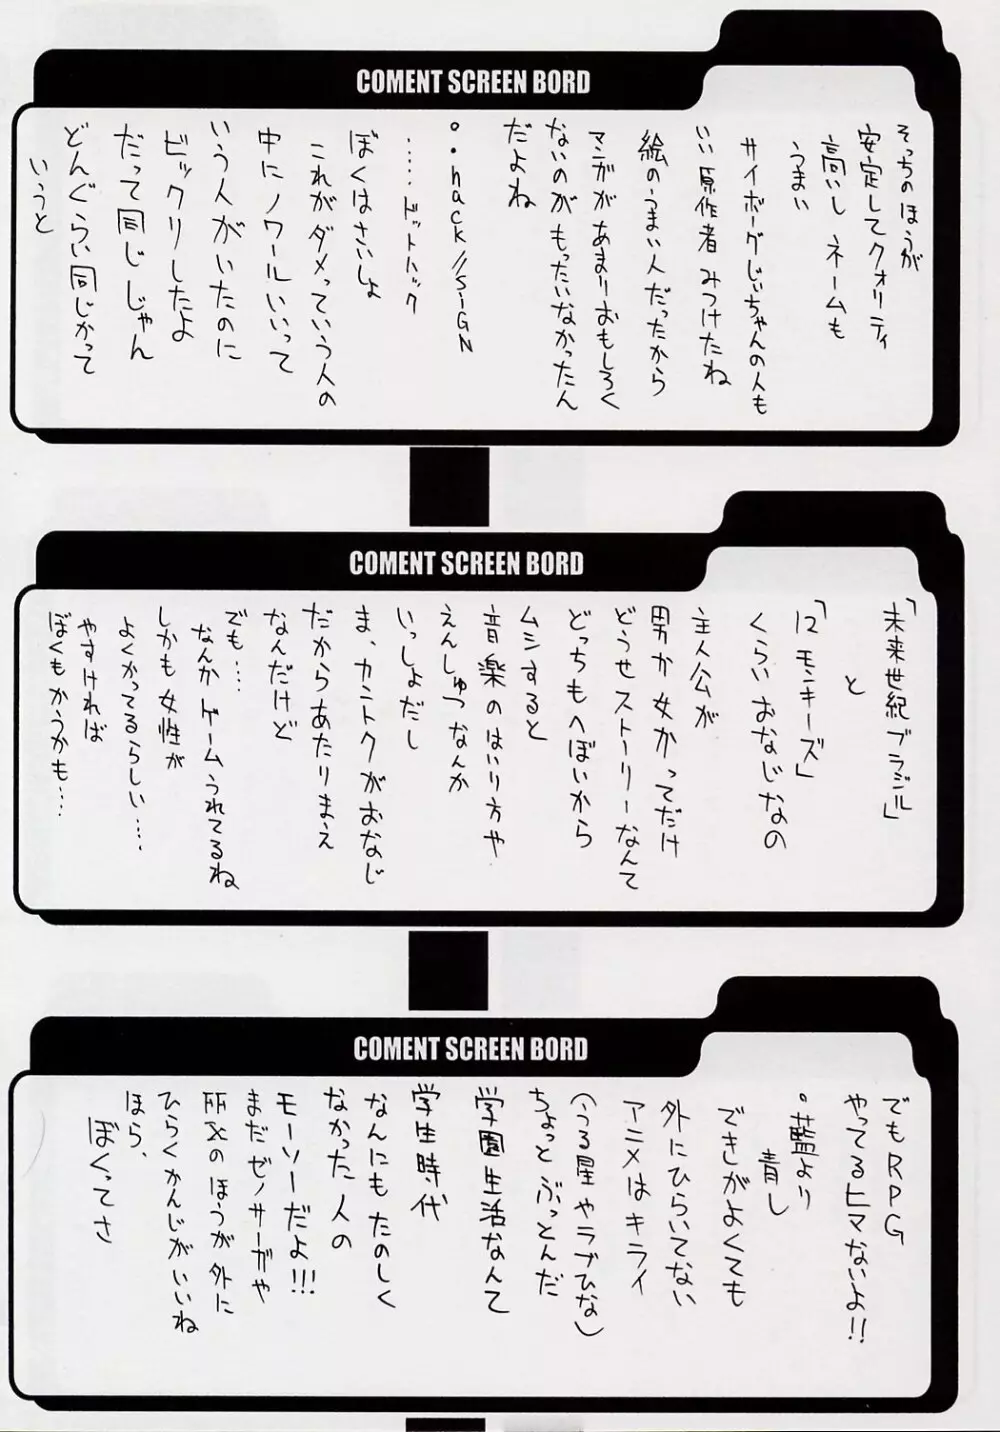 COMENT SCREEN BORD
そっちのほうが
安定してクォリティ
高いし ネームも
うまい
サイボーグじいちゃんの人も
いい原作者 みつけたね
絵のうまい人だったから
マンガがあまりおもしろく
ないのがもったいなかったん
だよね
。.hack//SiGN
……ドットハック
ぼくはさいしょ
これがダメっていう人の
中に ノワールいいって
いう人がいたのに
ビックリしたよ
だって同じじゃん
どんぐらい同じかって
いうと
COMENT SCREEN BORD
「未来世紀ブラジル」
と
「12モンキーズ」
くらい おなじなの
主人公が
男か女かってだけ
どうせストーリーなんて
どっちもへぼいから
ムシすると
音楽のはいり方や
えんしゅつなんか
いっしょだし
ま、カントクがおなじ
だからあたりまえ
なんだけど
でも…
なんかゲームうれてるね
しかも女性が
よくかってるらしい……
やすければ
ぼくもかうかも…
COMENT SCREEN BORD
でもRPG
やってるヒマないよ!!
。藍より
青し
できがよくても
外にひらいてない
アニメはキライ
(うる星やラブひな)
ちょっとぶっとんだ
学園生活なんて
学生時代
なんにもたのしく
なかった人の
モーソーだよ!!!
まだゼノサーガや
所さんのほうが外に
ひらくかんじがいいね
ほら、
ぼくってさ